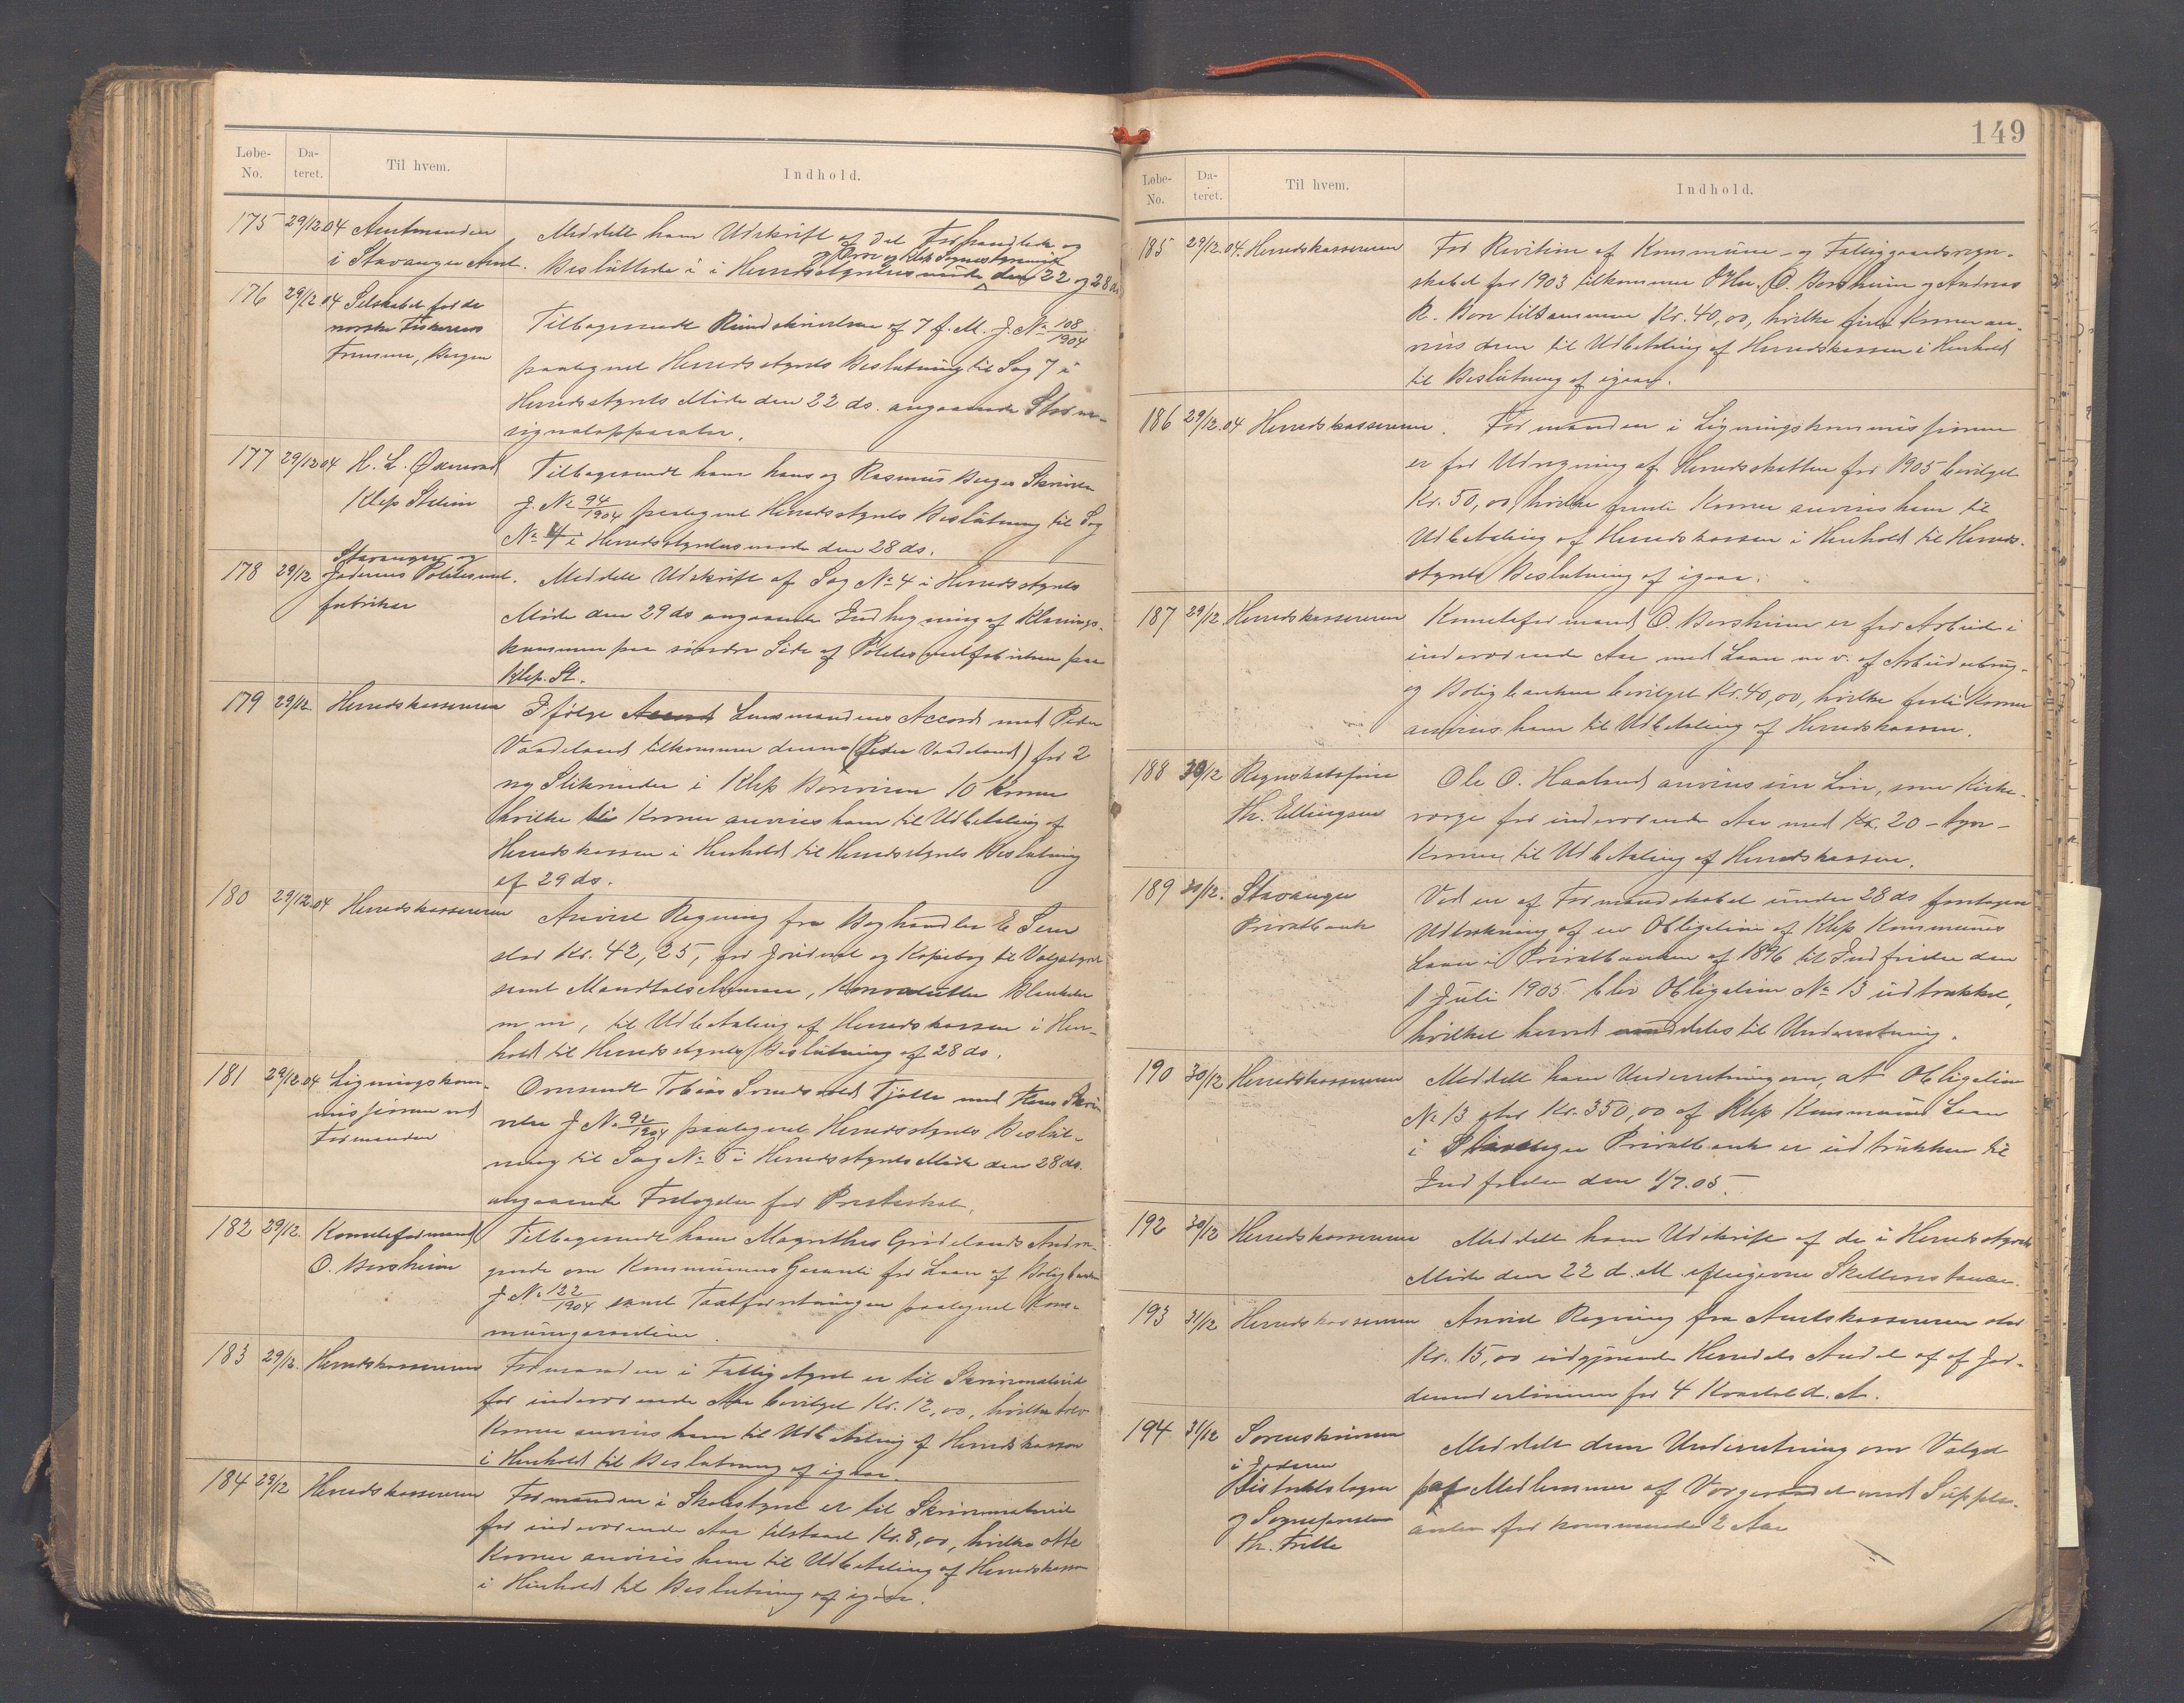 Løbe-No. Da-teret. Til hvem. Indhold.
175 29/12 04 Amtmanden i Stavanger Amt.
Meddelt ham Udskrift af det Forhandlede og
Besluttede i Herredsstyrelsesmøde den 22 og 28 ds
176 29/12 04 Selskabet for de norske Fiskeriers Fremme, Bergen
Tilbagesendt Rundskrivelse af 7 f. M. J. No 108/1904
paategnet Herredsstyrets Beslutning til Sag 7 i
Herredsstyrets Møde den 22 ds. angaaende Storm-
signalapparater.
177 29/12 04 H. L. Øxnevad Klep Station
Tilbagesendt ham hans og Rasmus Skrivelse
J. No 94/1904 paategnet Herredsstyrets Beslutning til Sag
No 4 i Herredsstyrelsesmøde den 28 ds.
178 29/12 Stavanger og Jæderens Potetesmel-fabriker
Meddelt Udskrift af Sag No 4 i Herredsstyrets
Møde den 29 ds angaaende Indhegning af Klarings-
kummen paa søndre Side af Potetesmelfabriken paa
Klep St.
179 29/12. Herredskassereren
Ifølge Lensmandens Accord med Peder
Vaadeland tilkommer denne (Peder Vaadeland) for 2
ny Stikrender i Klep 10 Kroner
hvilke ti Kroner anvises ham til Udbetaling af
Herredskassen i Henhold til Herredsstyrets Beslutning
af 29 ds.
180 29/12.04 Herredskassereren
Anvist Regning fra Boghandler E
stor Kr. 42,25, for og Kopibog til Valgstyret
samt Mandtalschemaer, Konvolutter Blanketter
m m, til Udbetaling af Herredskassen i Hen-
hold til Herredsstyrets Beslutning af 28 ds.
181 29/12.04 Ligningskom-missionen ved Formanden
Omsendt Tobias Fjotte med Hans Skri-
velse J No 92/1904 paategnet Herredsstyrets Beslut-
ning til Sag No 5 i Herredsstyrets Møde den 28 ds.
angaaende Fritagelse for Presteskat.
182 29/12. Komiteformand O. Borsheim
Tilbagesendt ham Magnthes Grudelands Andra-
gende om Kommunens Garanti for Laan af Boligbanken
J No 122/1904 samt Taxtforretningen paategnet Kom-
munegarantien.
183 29/12. Herredskassereren
Formanden i Fattigstyret er til Skrivmateriel
for indeværende Aar bevilget Kr. 12,00, hvilke tolv
Kroner anvises ham til Udbetaling af Herredskassen
i Henhold til Beslutning af igaar.
184 29/12 Herredskassereren
Formanden i Skolestyret er til Skrivmateriel
for indeværende Aar tilstaaet Kr. 8,00, hvilke otte
Kroner anvises ham til Udbetaling af Herredskassen
i Henhold til Beslutning af igaar.
149
Løbe-No. Da-teret. Til hvem. Indhold.
185 29/12.04. Herredskassereren
For Revision af Kommune- og Fattigregn-
skabet for 1903 tilkommer O. Borsheim og Andreas
R. Bore tilsammen Kr. 40,00, hvilke firti Kroner an-
vises dem til Udbetaling af Herredskassen i Henhold
til Beslutning af igaar.
186 29/12.04 Herredskassereren.
Formanden i Ligningskommissionen
er for Udregning af Herredsskatten for 1905 bevilget
Kr. 50,00, hvilke femti Kroner anvises ham til
Udbetaling af Herredskassen i Henhold til Herreds-
styrets Beslutning af igaar.
187 29/12 Herredskassereren
Komiteformand O. Borsheim er for Arbeide i
indeværende Aar med Laan m v. af Arbeiderbrug-
og Boligbanken bevilget Kr. 40,00, hvilke firti Kroner
anvises ham til Udbetaling af Herredskassen.
188 30/12 Th. Ellingsen
Ole O. Haaland anvises sin Løn, som Kirke-
værge for indeværende Aar med Kr. 20 – tyve –
Kroner til Udbetaling af Herredskassen.
189 30/12. Stavanger Privatbank
Ved en af Formandskabet under 28 ds foretagen
Udtrækning af en Obligation af Klep Kommunes
Laan i Privatbanken af 1896 til Indfrielse den
1 Juli 1905 blev Obligation No 13 udtrukket,
hvilket herved meddeles til Underretning.
190 30/12 Herredskassereren
Meddelt ham Underretning om, at Obligation
No 13 stor Kr. 350,00 af Klep Kommunes Laan
i Stavanger Privatbank er udtrukken til
Indfrielse den 1/7.05.
192 30/12 Herredskassereren
Meddelt ham Udskrift af de i Herredsstyrets
Møde den 22 d. M. afleverne
193 31/12 Herredskassereren
Anvist Regning fra Amtskassereren stor
Kr. 15,00 udgjørende Herredets Andel af Jor-
demoderlønnen for 4 Kvartal d. A.
194 31/12 Sorenskriveren i Jæderen Distriktslægen og Sognepresten Th. Frette
Meddelt dem Underretning om Valget
paa Medlemmer af Vergeraadet med Supple-
anter for kommende 2 Aar